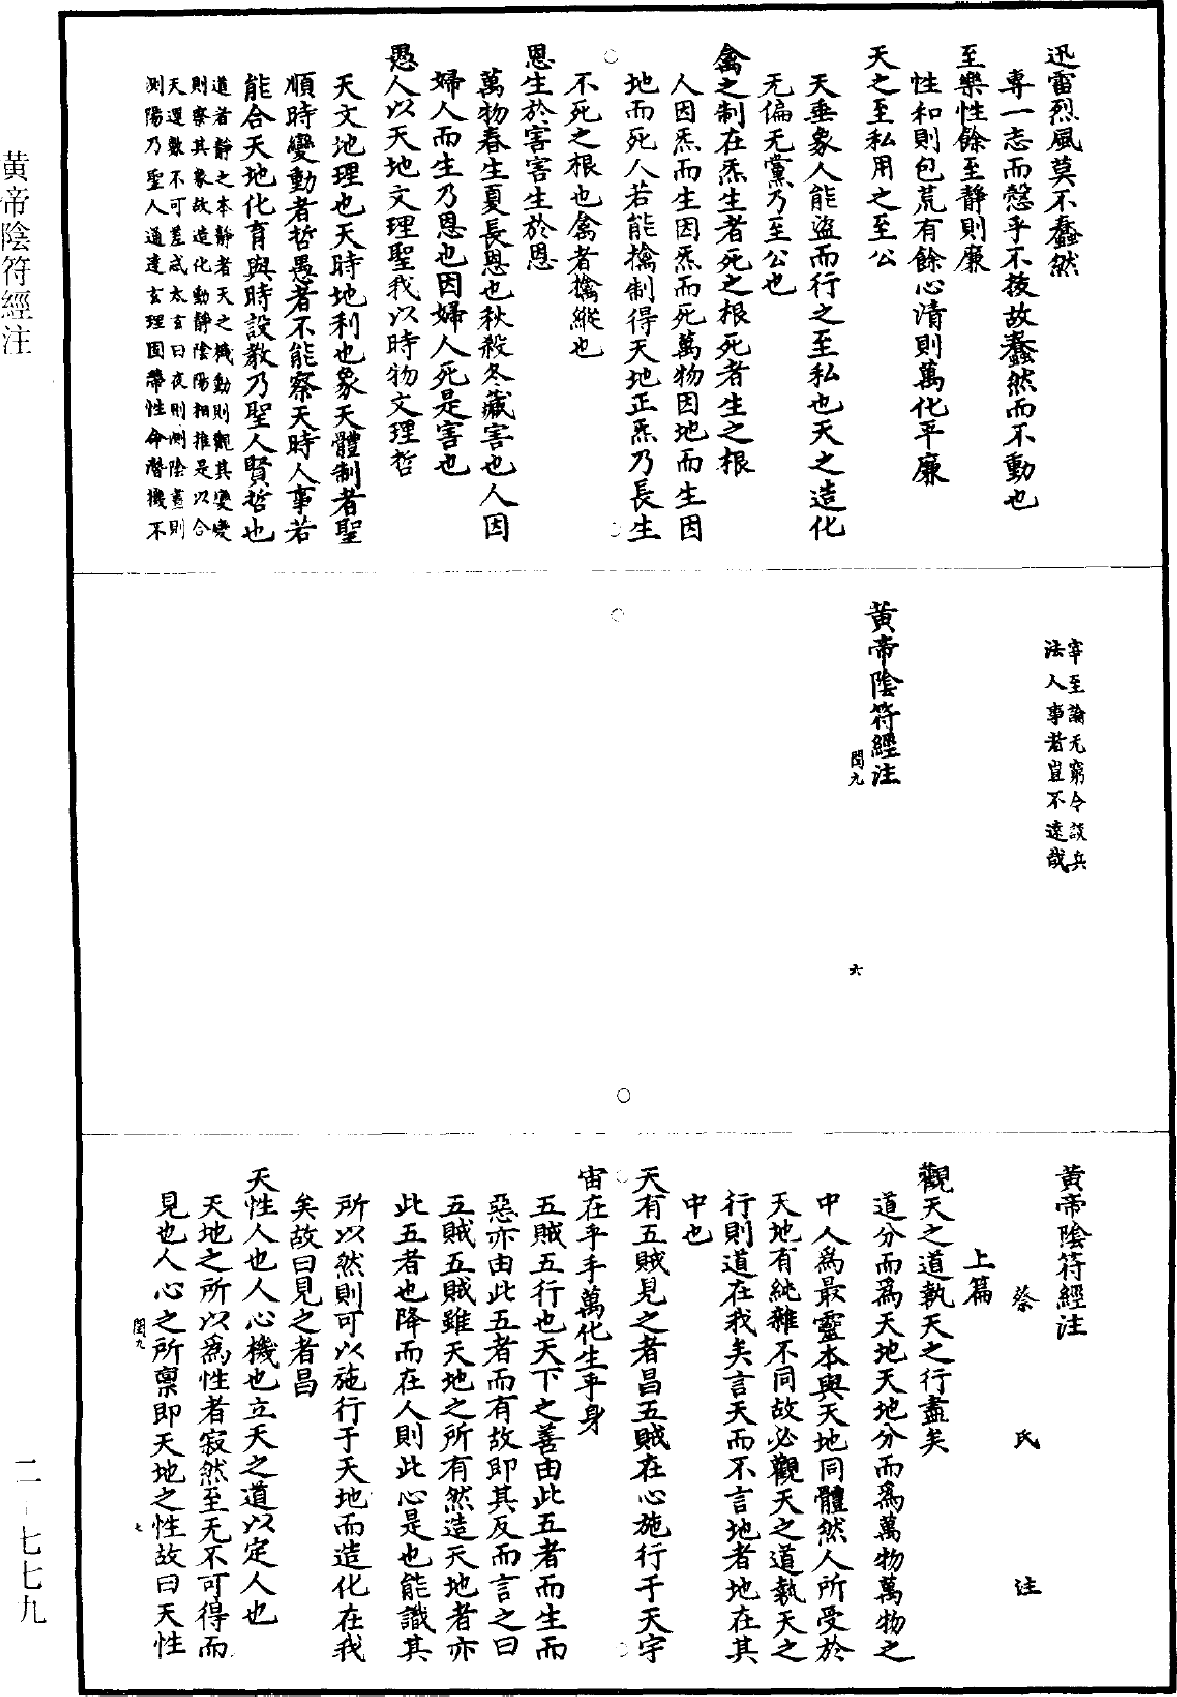 迅雷烈風莫不蠢然
專一志而慤乎不拔故蠢然而不動也
至樂性餘至靜則廉
性和則包荒有餘心清則萬化平廉
天之至私用之至公
天垂象人能盜而行之至私也天之造化
无偏无黨乃至公也
禽之制在炁生者死之根死者生之根
人因炁而生因炁而死萬物因地而生因
地而死人若能擒制得天地正炁乃長生
不死之根也禽者擒縱也
恩生於害害生於恩
萬物春生夏長恩也秋殺冬藏害也人因
婦人而生乃恩也因婦人死是害也
愚人以天地文理聖我以時物文理哲
天文地理也天時地利也象天體制者聖
順時變動者哲愚者不能察天時人事若
能合天地化育與時設教乃聖人賢哲也
道者靜之本靜者天之機動則觀其變變
則察其象故造化動靜陰陽相推是以合
天運數不可差忒太玄曰夜則測陰晝則
測陽乃聖人通達玄理固蔕性命潛機不
宰至論无窮今談兵
法人事者豈不遠哉
黃帝陰符經注
閏九
六
黃帝陰符經注
蔡氏注
上篇
觀天之道執天之行盡矣
道分而爲天地天地分而爲萬物萬物之
中人爲最靈本與天地同體然人所受於
天地有純雜不同故必觀天之道執天之
行則道在我矣言天而不言地者地在其
中也
天有五賊見之者昌五賊在心施行于天宇
宙在乎手萬化生乎身
五賊五行也天下之善由此五者而生而
惡亦由此五者而有故即其反而言之曰
五賊五賊雖天地之所有然造天地者亦
此五者也降而在人則此心是也能識其
所以然則可以施行于天地而造化在我
矣故曰見之者昌
天性人也人心機也立天之道以定人也
天地之所以爲性者寂然至无不可得而
見也人心之所禀即天地之性故曰天性
閏九
七
黃帝陰符經注
二-七七九